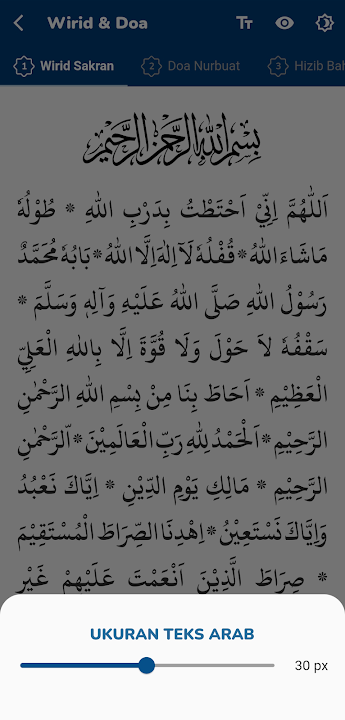 Wirid & Doa
1 Wirid Sakran 2 Doa Nurbuat 3 Hizib Bah
بِسْمِ اللهِ الرَّحْمٰنِ الرَّحِيْمِ
اَللّٰهُمَّ اِنِّيْ اَحْتَطْتُ بِدَرْبِ اللهِ * طُوْلُهُ
مَاشَاءَ اللهُ * قُفْلُهُ لَآ اِلٰهَ اِلَّا اللهُ * بَابُهُ مُحَمَّدٌ
رَسُوْلُ اللهِ صَلَّى اللهُ عَلَيْهِ وَآلِهِ وَسَلَّمَ *
سَقْفُهُ لاَ حَوْلَ وَلَا قُوَّةَ اِلَّا بِاللهِ الْعَلِيِّ
الْعَظِيْمِ * اَحَاطَ بِنَا مِنْ بِسْمِ اللهِ الرَّحْمٰنِ
الرَّحِيْمِ * اَلْحَمْدُ لِلّٰهِ رَبِّ الْعَالَمِيْنَ * اَلرَّحْمٰنِ
الرَّحِيْمِ * مَالِكِ يَوْمِ الدِّيْنِ * اِيَّاكَ نَعْبُدُ
وَاِيَّاكَ نَسْتَعِيْنُ * اِهْدِنَا الصِّرَاطَ الْمُسْتَقِيْمَ
* صِرَاطَ الَّذِيْنَ اَنْعَمْتَ عَلَيْهِمْ غَيْرِ
UKURAN TEKS ARAB
30 px